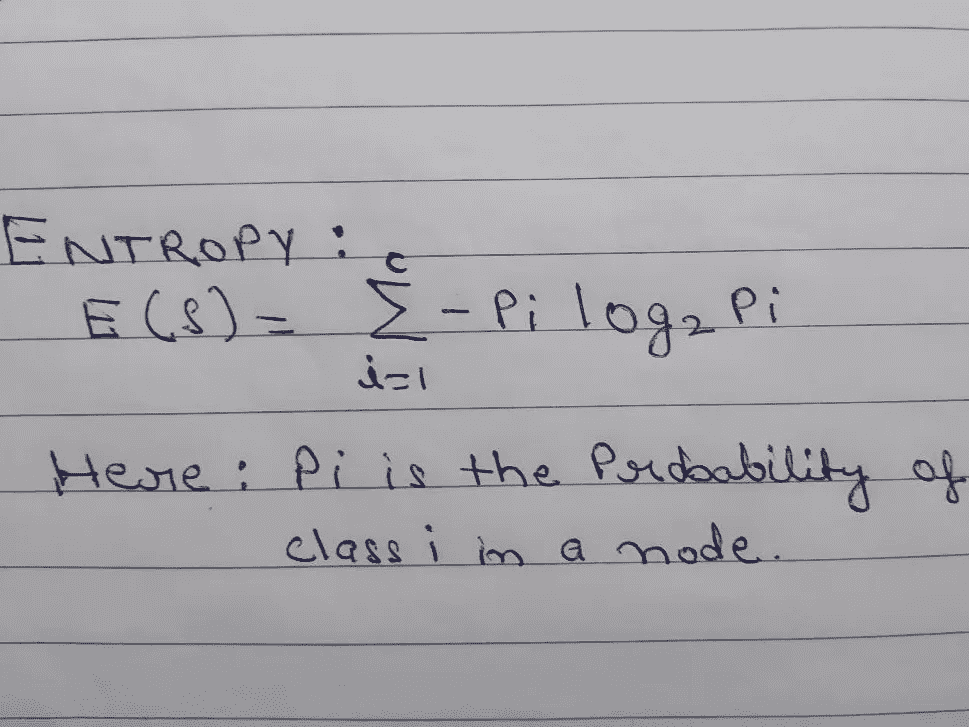 ENTROPY :
E(S) = c Σ i=1 - Pi log₂ Pi
Here : Pi is the Probability of
class i in a node.